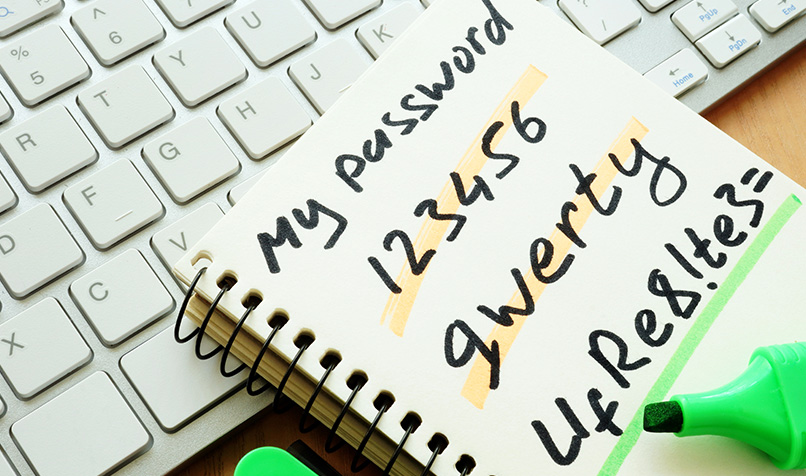 My password
123456
qwerty
UfRe8!te3=
^
6
%
5
Y
U
T
R
H
J
K
G
F
D
V
C
X
?
PgUp
PgDn
Home
End